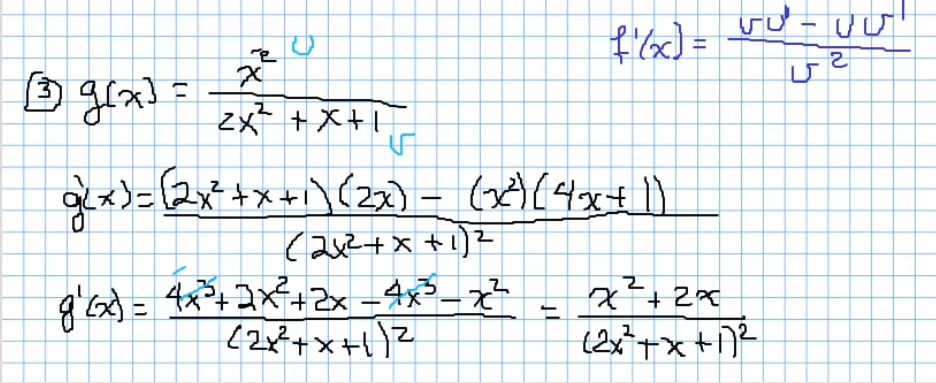 f'(x) = (vu' - uv') / v²
[3] g(x) = x² / (2x² + x + 1) u v
g'(x) = ((2x² + x + 1)(2x) - (x²)(4x + 1)) / (2x² + x + 1)²
g'(x) = (4x³ + 2x² + 2x - 4x³ - x²) / (2x² + x + 1)² = (x² + 2x) / (2x² + x + 1)²